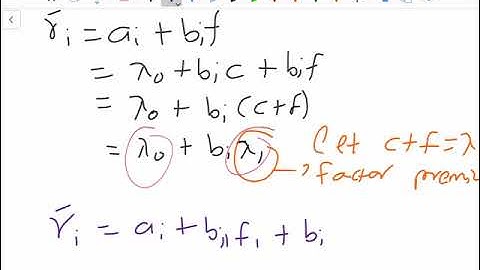 r̄ᵢ = aᵢ + bᵢf
= λ₀ + bᵢc + bᵢf
= λ₀ + bᵢ (c+f)
= λ₀ + bᵢ λ₁ (let c+f=λ
→ factor premi
r̄ᵢ = aᵢ + bᵢ₁f₁ + bᵢ